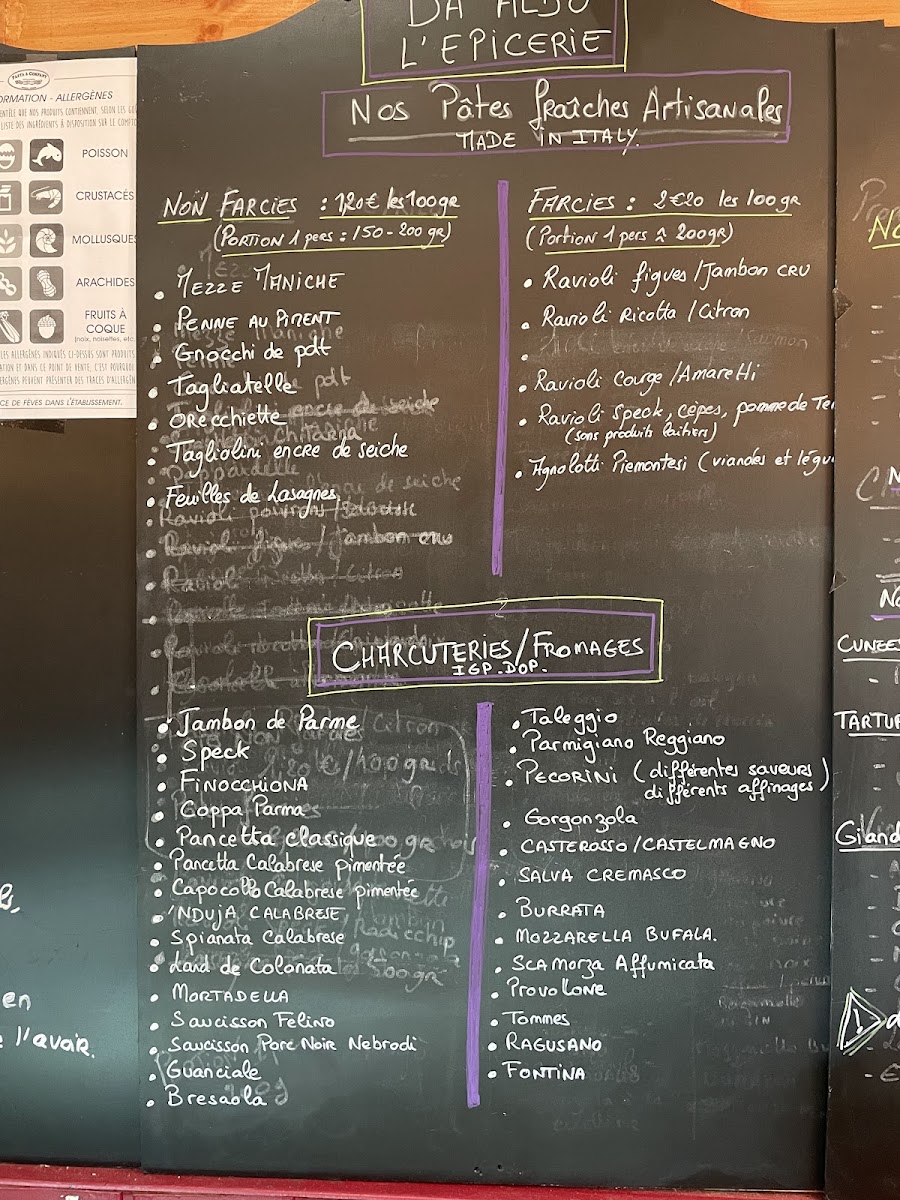 DA ALDO
L'EPICERIE
Nos Pâtes fraîches Artisanales
MADE IN ITALY.
NON FARCIES : 1,20€ les 100gr
(PORTION 1 pers : 150-200 gr)
• MEZZE MANICHE
• PENNE AU PIMENT
• Gnocchi de pdt
• Tagliatelle
• Orecchiette
• Tagliolini encre de seiche
• Feuilles de Lasagnes
FARCIES : 2€20 les 100gr
(Portion 1 pers ≈ 200gr)
• Ravioli figues/Jambon CRU
• Ravioli Ricotta/Citron
•
• Ravioli Courge/Amaretti
• Ravioli speck, cèpes, pomme de Te
(sans produits laitiers)
• Agnolotti Piemontesi (viandes et légu
CHARCUTERIES/FROMAGES
IGP.DOP.
• Jambon de Parme
• Speck
• FINOCCHIONA
• Coppa Parma
• Pancetta classique
• Pancetta Calabrese pimentée
• Capocollo Calabrese pimentée
• 'NDUJA CALABRESE
• Spianata Calabrese
• Lard de Colonata
• MORTADELLA
• Saucisson Felino
• Saucisson Porc Noir Nebrodi
• Guanciale
• Bresaola
• Taleggio
• Parmigiano Reggiano
• PECORINI (différentes saveurs)
différents affinages)
• Gorgonzola
• CASTEROSSO/CASTELMAGNO
• SALVA CREMASCO
• BURRATA
• MOZZARELLA BUFALA.
• SCAMORZA Affumicata
• PROVOLONE
• Tommes
• RAGUSANO
• FONTINA
PASTA & COMPANY
ORMATION - ALLERGÈNES
POISSON
CRUSTACÉS
MOLLUSQUES
ARACHIDES
FRUITS À
COQUE
(noix, noisettes, etc.
CE DE FÈVES DANS L'ÉTABLISSEMENT.
en
l'avoir.
CUNEES
TARTUF
Giand